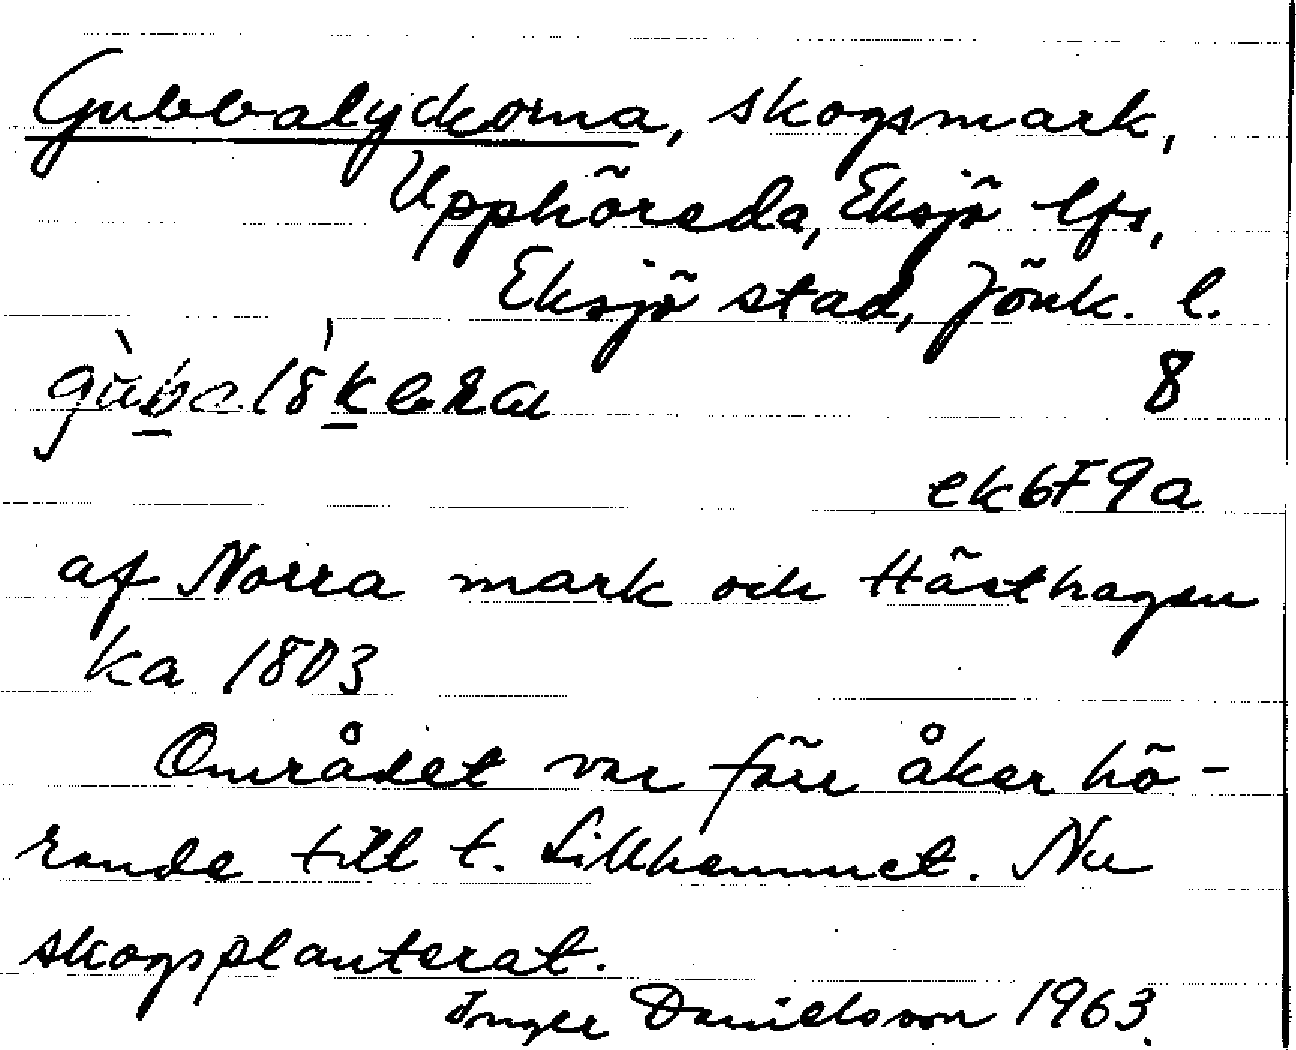 Gubbalyckorna, skogsmark,
Upphöreda, Eksjö lfs,
Eksjö stad, Jönk. l.
8
ek 6F9a
af Norra mark och Hästhagen
ka 1803
Området var förr åker hö-
rande till t. Lillhemmet. Nu
skogsplanterat.
Inger Danielsson 1963.